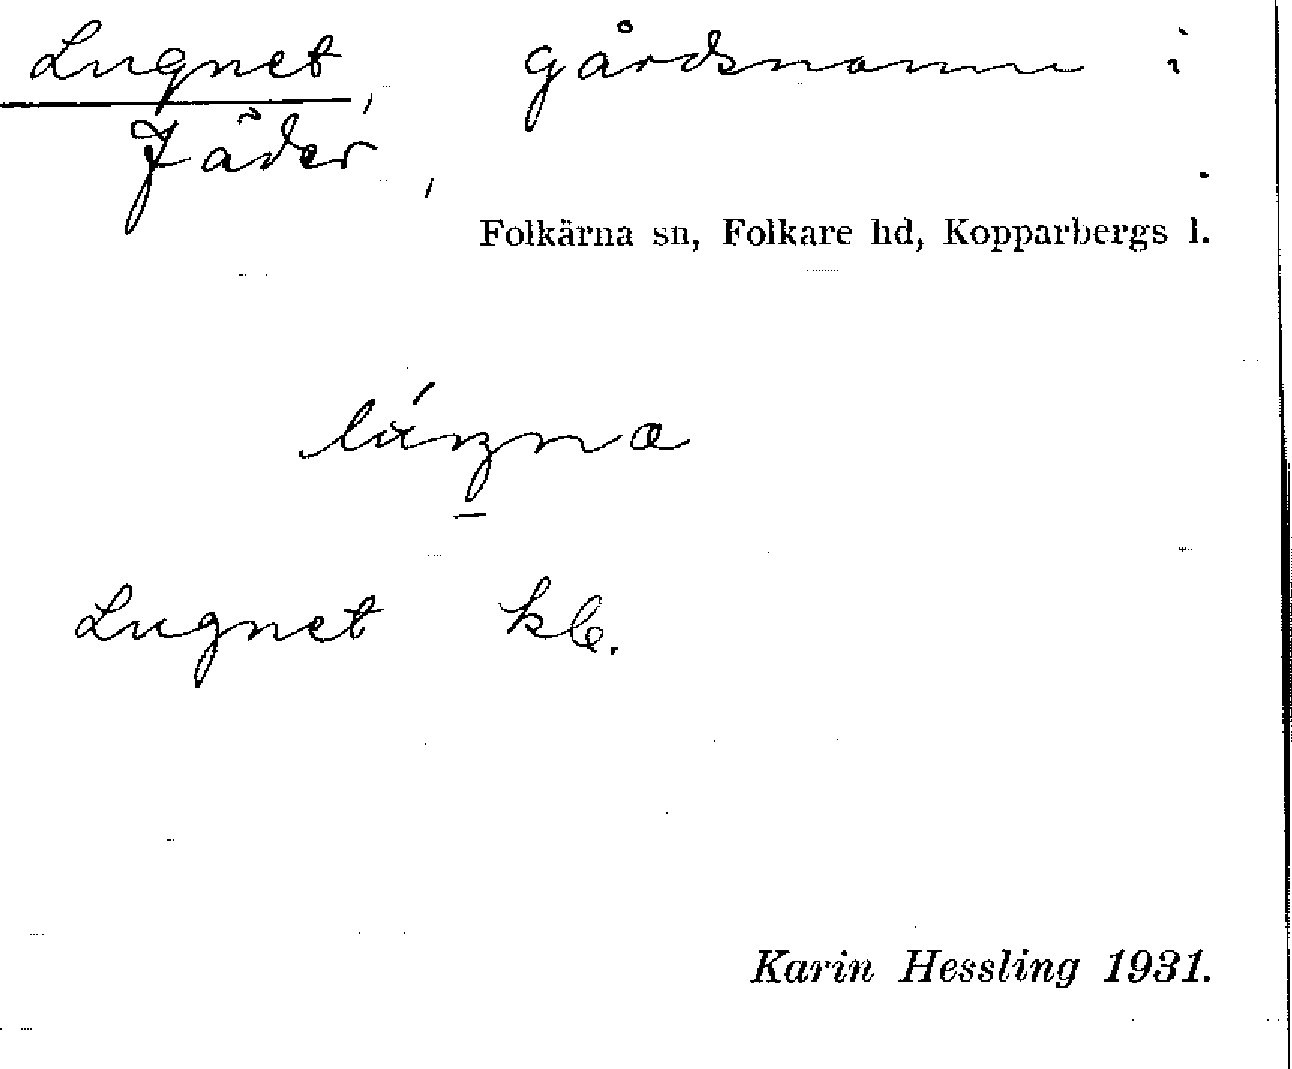 Lugnet, gårdsnamn i
Jäder,
Folkärna sn, Folkare hd, Kopparbergs l.
Lugnet kb.
Karin Hessling 1931.